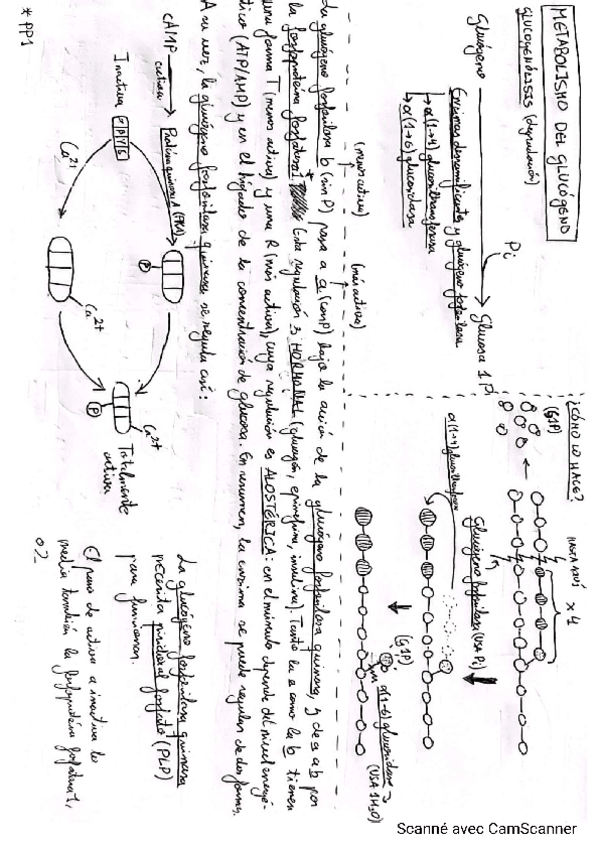 METABOLISMO DEL GLUCÓGENO
GLUCOGENÓLISIS (degradación)
Glucógeno → Glucosa 1P
Pi
Enzimas desramificantes y glucógeno fosforilasa
→ α(1→4) glucosiltransferasa
→ α(1→6) glucosidasa
¿CÓMO LO HACE?
HASTA AQUÍ
x4
(G1P)
Glucógeno fosforilasa (USA Pi)
α(1→4) glucosiltransferasa
(G1P)
α(1→6) glucosidasa
(USA 1 H2O)
(menos activa)
(más activa)
La glucógeno fosforilasa b (sin P) pasa a a (con P) bajo la acción de la glucógeno fosforilasa quinasa, y de a a b por
la fosfoproteína fosfatasa 1*. Esta regulación es HORMONAL (glucagón, epinefrina, insulina). Tanto la a como la b tienen
una forma T (menos activa) y una R (más activa), cuya regulación es ALOSTÉRICA: en el músculo depende del nivel energé-
tico (ATP/AMP) y en el hígado de la concentración de glucosa. En resumen, la enzima se puede regular de dos formas.
A su vez, la glucógeno fosforilasa quinasa se regula así:
cAMP → Proteína quinasa A (PKA)
activa
Inactiva
P
Ca2+
Ca2+
P
Ca2+
Totalmente
activa
La glucógeno fosforilasa quinasa
necesita piridoxal fosfato (PLP)
para funcionar.
El paso de activa a inactiva lo
media también la fosfoproteína fosfatasa 1,
* PP1
Scanné avec CamScanner